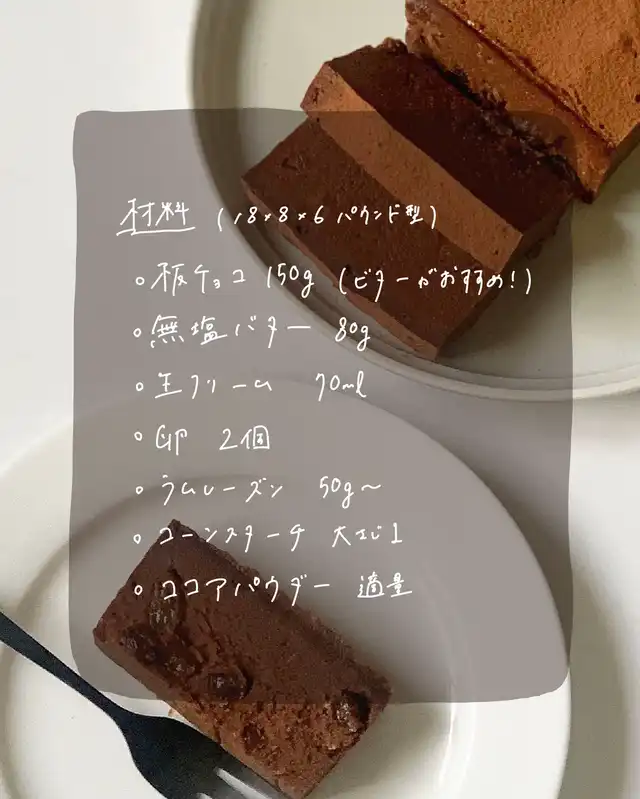 材料 (18×8×6 パウンド型)
○板チョコ 150g (ビターがおすすめ!)
○無塩バター 80g
○生クリーム 70ml
○卵 2個
○ラムレーズン 50g〜
○コーンスターチ 大さじ1
○ココアパウダー 適量